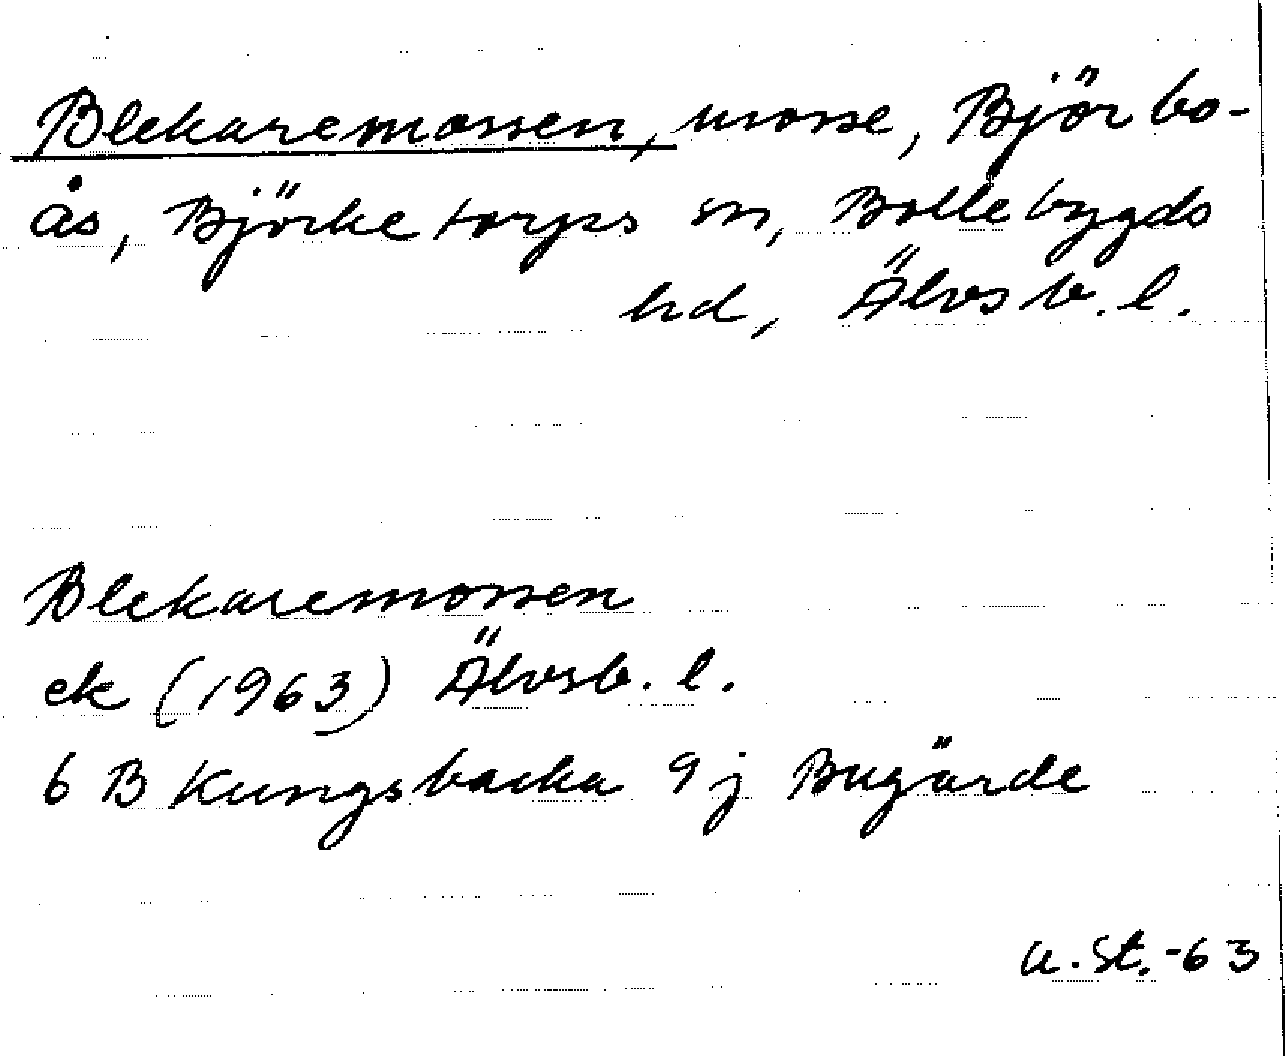 Blekaremossen, mosse, Björbo-
ås, Björketorps sn, Bollebygds
hd, Älvsb. l.
Blekaremossen
ek (1963) Älvsb. l.
6 B Kungsbacka 9 j Bugärde
U. St. -63